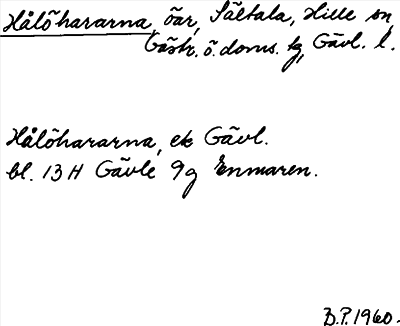 Hålöhararna, öar, Sältala, Hille sn,
Gästr. ö. doms. tg, Gävl. l.
Hålöhararna, ek Gävl.
bl. 13 H Gävle 9g Enmaren.
B.P. 1960.